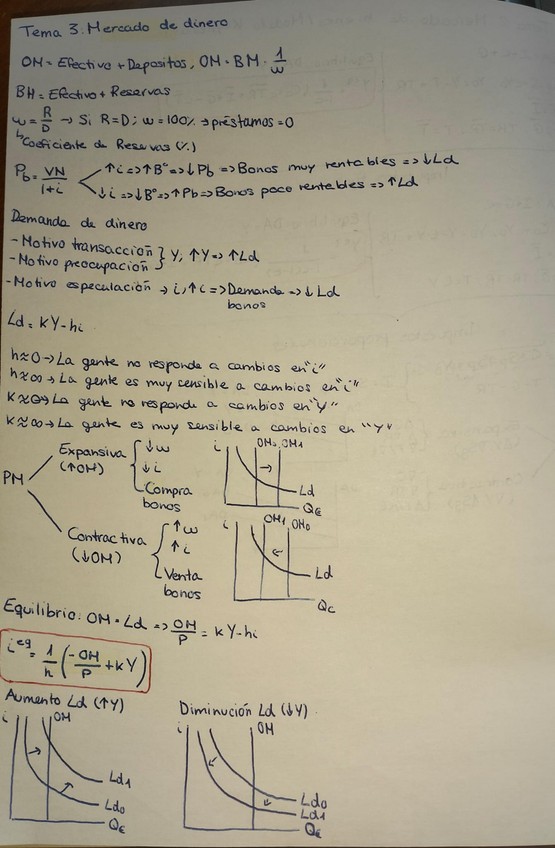 Tema 3. Mercado de dinero
OM = Efectivo + Depositos, OM = BM · 1/ω
BH = Efectivo + Reservas
ω = R/D → Si R = D; ω = 100% → préstamos = 0
↳ Coeficiente de Reservas (%)
Pb = VN/1+i
↑i => ↑Bº => ↓Pb => Bonos muy rentables => ↓Ld
↓i => ↓Bº => ↑Pb => Bonos poco rentables => ↑Ld
Demanda de dinero
- Motivo transacción
- Motivo preocupación } Y, ↑Y => ↑Ld
- Motivo especulación → i, ↑i => Demanda => ↓Ld
bonos
Ld = kY - hi
h ≈ 0 → La gente no responde a cambios en "i"
h ≈ ∞ → La gente es muy sensible a cambios en "i"
K ≈ 0 → La gente no responde a cambios en "Y"
K ≈ ∞ → La gente es muy sensible a cambios en "Y"
PM
Expansiva
(↑OM)
↓ω
↓i
Compra
bonos
i OM₀ OM₁
Ld
Q€
Contractiva
(↓OM)
↑ω
↑i
Venta
bonos
i OM₁ OM₀
Ld
Q€
Equilibrio: OM = Ld => OM/P = kY - hi
i^eq = 1/h (-OM/P + kY)
Aumento Ld (↑Y)
i OM
Ld₁
Ld₀
Q€
Diminución Ld (↓Y)
i OM
Ld₀
Ld₁
Q€